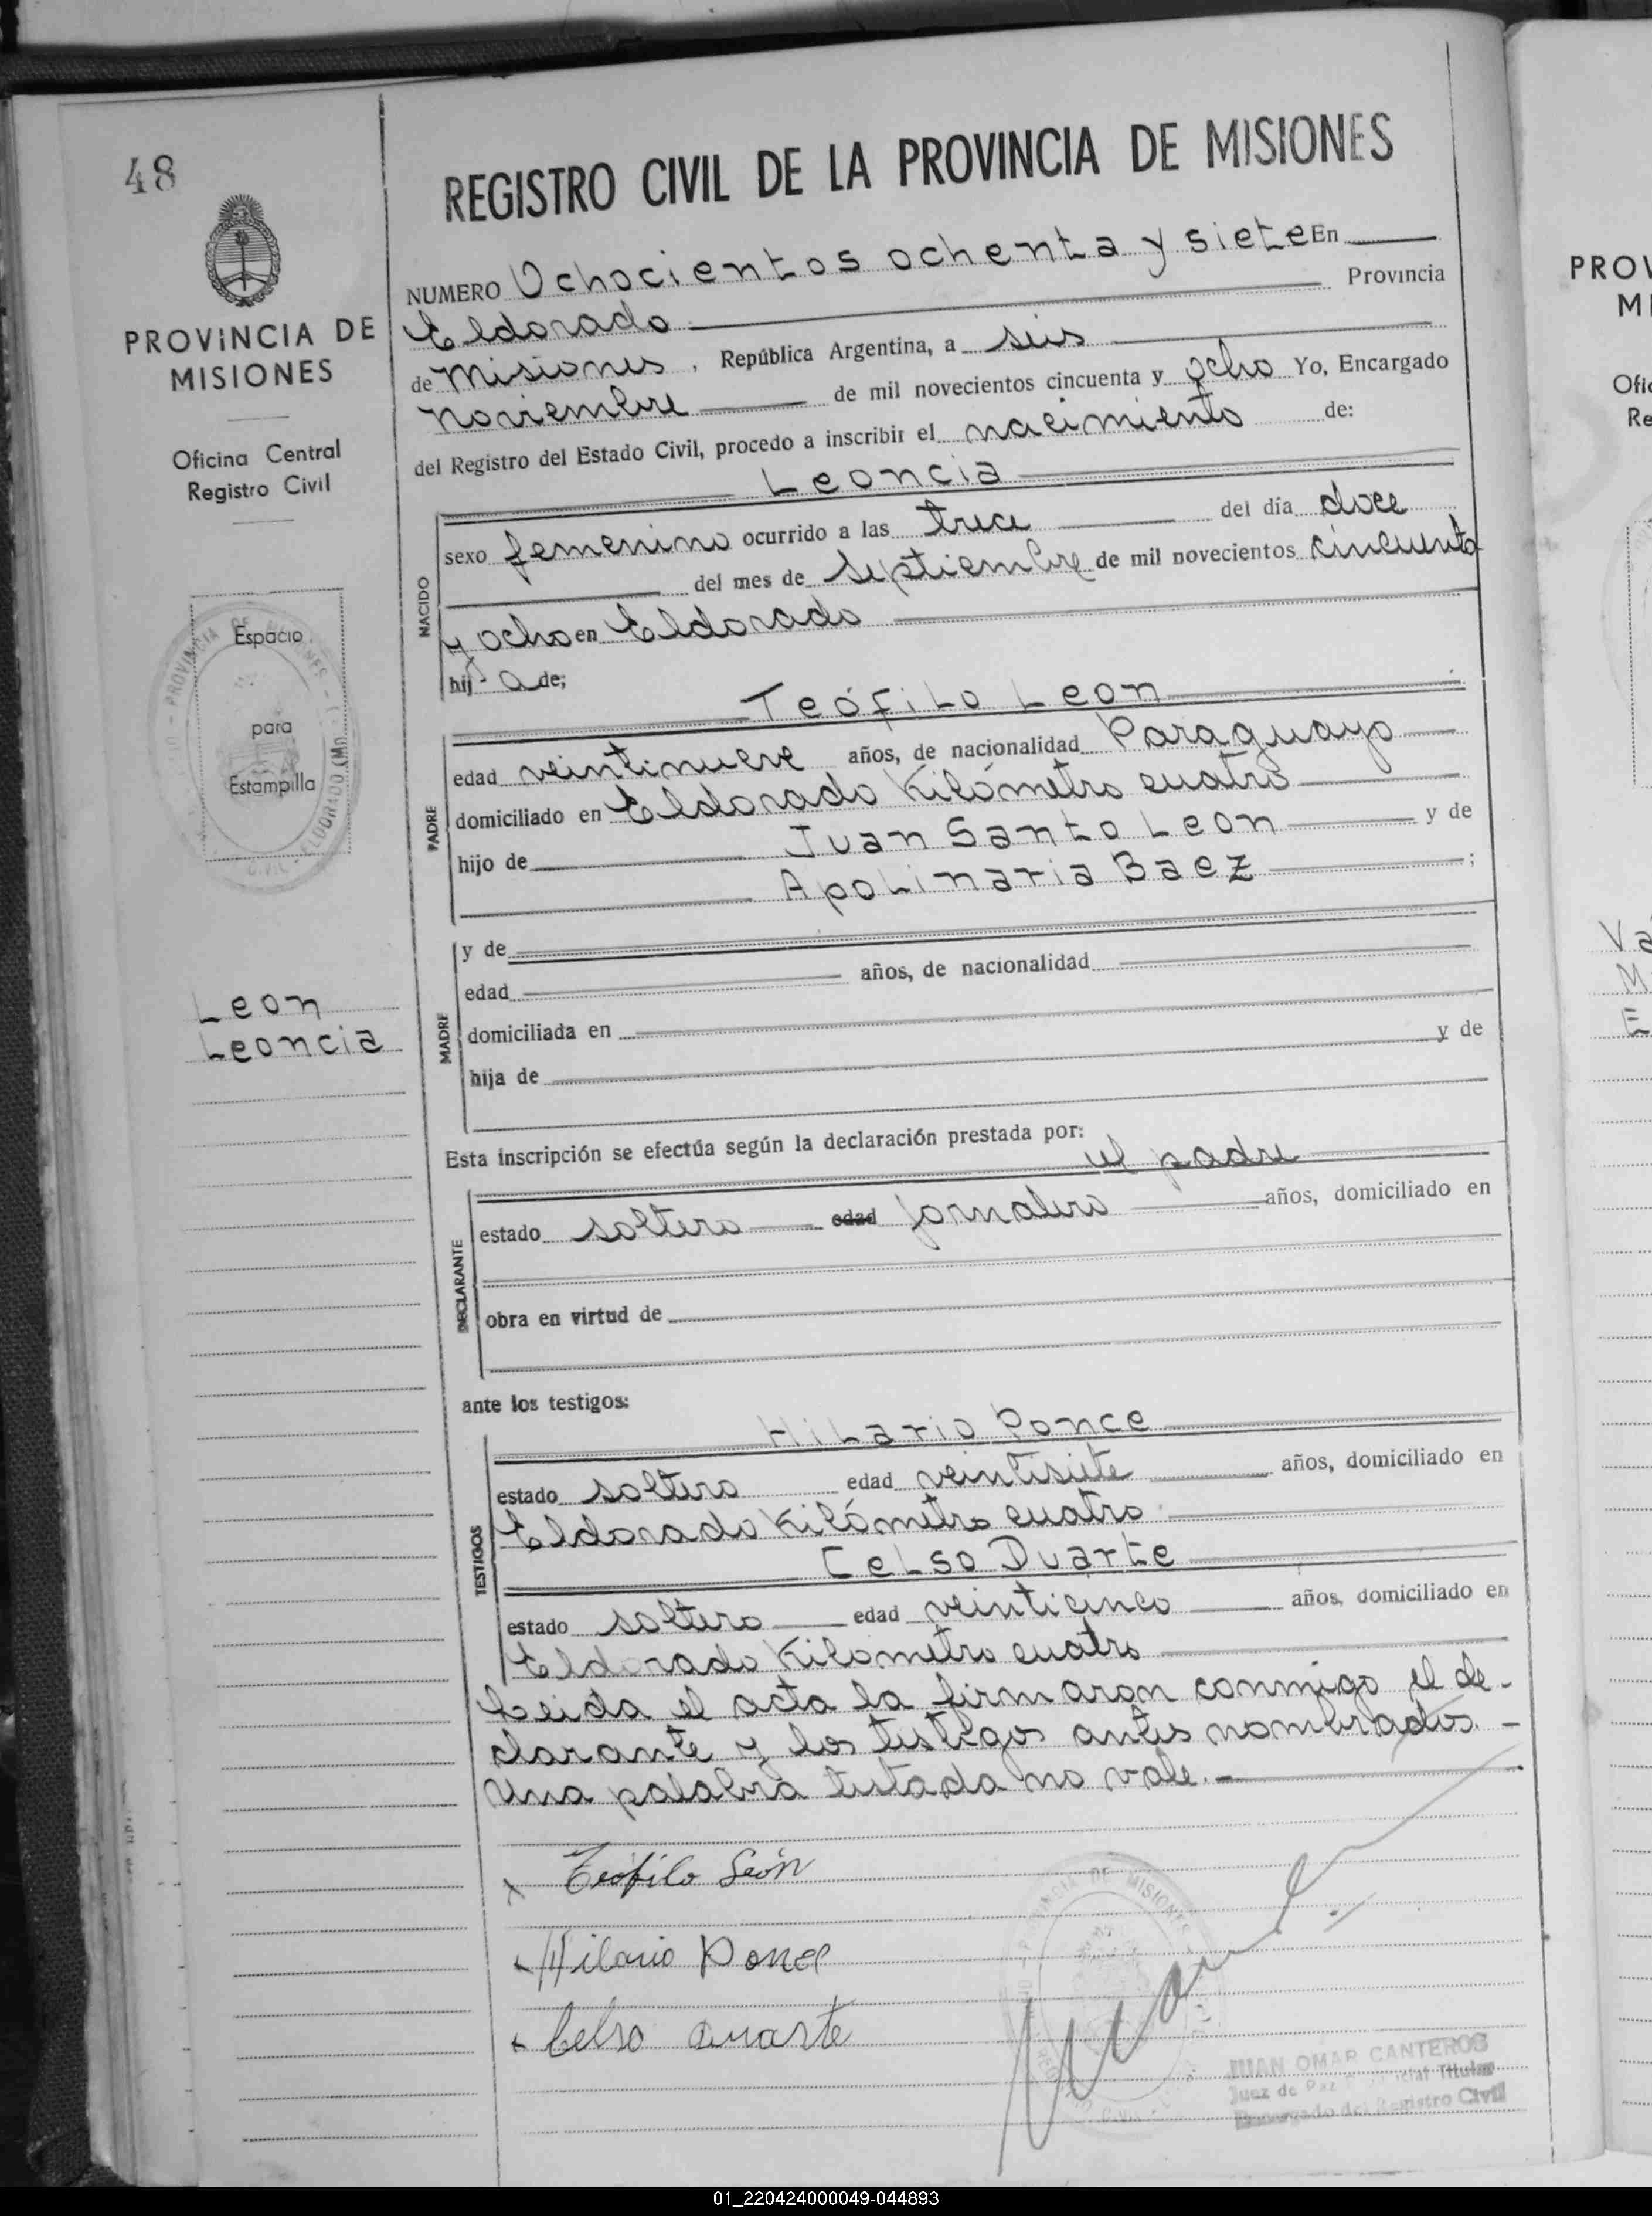 48
PROVINCIA DE
MISIONES
Oficina Central
Registro Civil
Espacio
para
Estampilla
Leon
Leoncia
REGISTRO CIVIL DE LA PROVINCIA DE MISIONES
NUMERO Ochocientos ochenta y siete En
Eldorado Provincia
de Misiones, República Argentina, a seis
noviembre de mil novecientos cincuenta y ocho Yo, Encargado
del Registro del Estado Civil, procedo a inscribir el nacimiento de:
Leoncia
NACIDO
sexo femenino ocurrido a las trece del día doce
del mes de septiembre de mil novecientos cincuenta
y ocho en Eldorado
hij a de;
Teófilo Leon
PADRE
edad veintinueve años, de nacionalidad Paraguayo
domiciliado en Eldorado Kilómetro cuatro
hijo de Juan Santo Leon y de
Apolinaria Baez ;
MADRE
y de
edad años, de nacionalidad
domiciliada en
hija de y de
Esta inscripción se efectúa según la declaración prestada por:
el padre
DECLARANTE
estado soltero edad jornalero años, domiciliado en
obra en virtud de
ante los testigos:
Hilario Ponce
TESTIGOS
estado soltero edad veintisiete años, domiciliado en
Eldorado Kilómetro cuatro
Celso Duarte
estado soltero edad veinticinco años, domiciliado en
Eldorado Kilometro cuatro
Leida el acta la firmaron conmigo el de-
clarante y los testigos antes nombrados.-
Una palabra testada no vale.-
x Teófilo León
x Hilario Ponce
x Celso Duarte
JUAN OMAR CANTEROS
Juez de Paz Titular
Encargado del Registro Civil
PROV
MI
Ofic
Re
Va
M
E
01_220424000049-044893